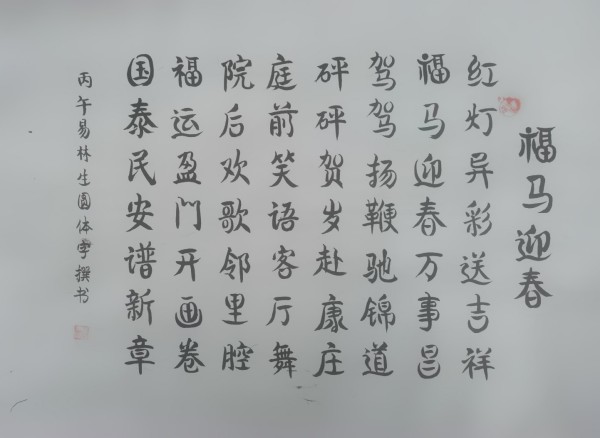 福马迎春
红灯异彩送吉祥
福马迎春万事昌
驾驾扬鞭驰锦道
砰砰贺岁赴康庄
庭前笑语客厅舞
院后欢歌邻里腔
福运盈门开画卷
国泰民安谱新章
丙午易林生圆体学撰书